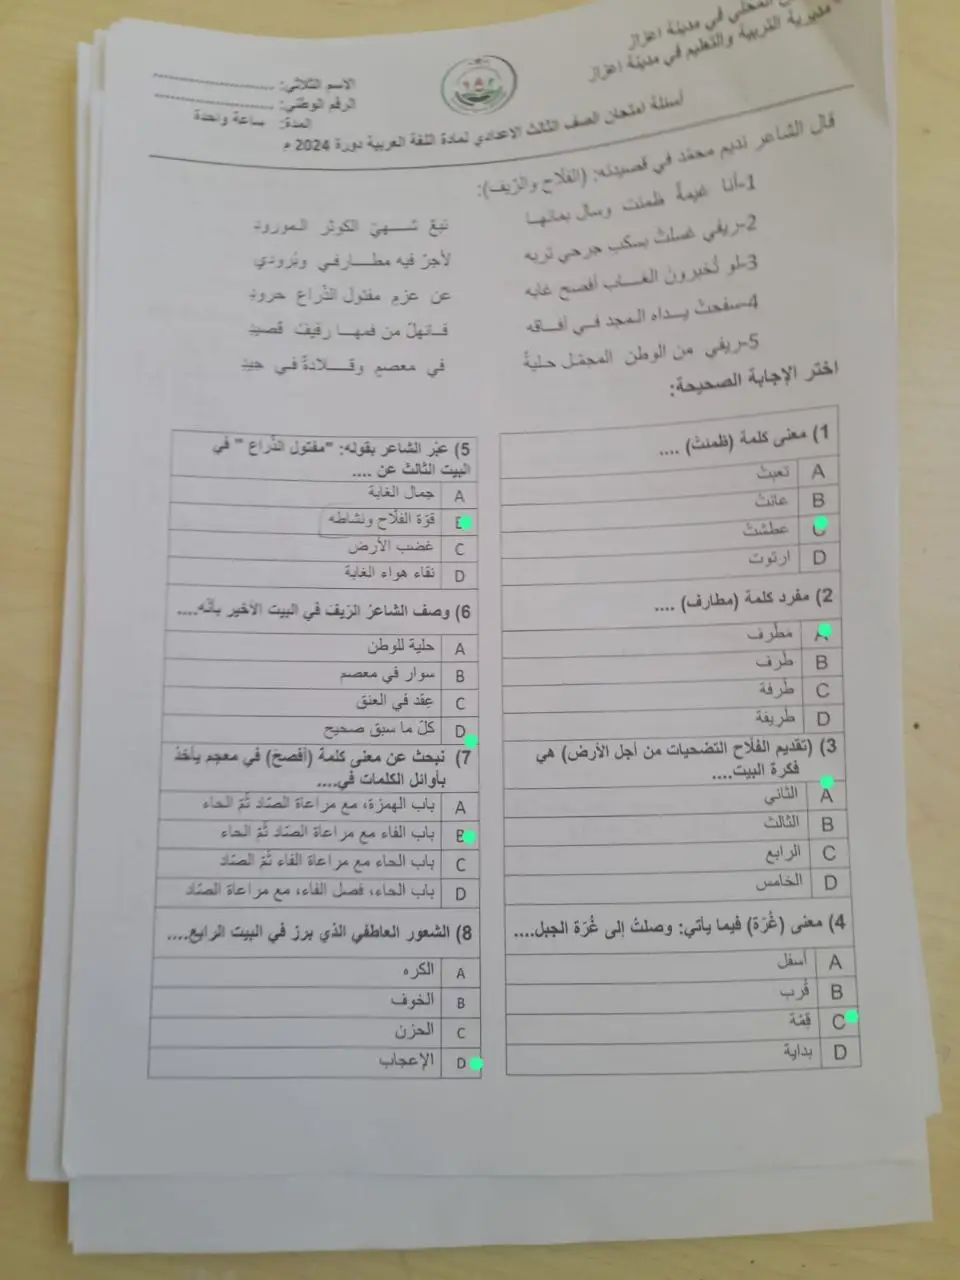 المحلي في مدينة اعزاز
مديرية التربية والتعليم في مدينة اعزاز
الاسم الثلاثي: ....................
الرقم الوطني: ....................
المدة: ساعة واحدة
أسئلة امتحان الصف الثالث الإعدادي لمادة اللغة العربية دورة 2024 م
قال الشاعر نديم محمّد في قصيدته: (الفلاح والرّيف):
1-أنا غيمةٌ ظمئت وسال بمائها نبعُ شـــهيّ الكوثر المورودِ
2-ريفي غسلتُ بسكب جرحي تربه لأجرّ فيه مطـــارفـي وبُرودي
3-لو تُخبرونَ الغـاب أفصح غابه عن عزمِ مفتول الذّراع حرودِ
4-سفحتْ يـداه المجد فـي آفـاقه فـانهلّ من فمهـا رفيفُ قصيدِ
5-ريفي من الوطن المجمّل حليةٌ في معصمٍ وقـــلادةٌ فـي جيدِ
اختر الإجابة الصحيحة:
1) معنى كلمة (ظمئتْ) ....
A تعبتْ
B عانتْ
C عطشتْ
D ارتوت
2) مفرد كلمة (مطارف) ....
A مطرف
B طرف
C طُرفة
D طريفة
3) (تقديم الفلّاح التضحيات من أجل الأرض) هي
فكرة البيت....
A الثاني
B الثالث
C الرابع
D الخامس
4) معنى (غُرّة) فيما يأتي: وصلتُ إلى غُرّة الجبل....
A أسفل
B قُرب
C قِمّة
D بداية
5) عبّر الشاعر بقوله: "مفتول الذّراع " في
البيت الثالث عن ....
A جمال الغابة
B قوّة الفلّاح ونشاطه
C غضب الأرض
D نقاء هواء الغابة
6) وصف الشاعرُ الرّيفَ في البيت الأخير بأنّه....
A حلية للوطن
B سوار في معصم
C عِقد في العنق
D كلّ ما سبق صحيح
7) نبحث عن معنى كلمة (أفصحَ) في معجم يأخذ
بأوائل الكلمات في....
A باب الهمزة، مع مراعاة الصّاد ثُمّ الحاء
B باب الفاء مع مراعاة الصّاد ثُمّ الحاء
C باب الحاء مع مراعاة الفاء ثُمّ الصّاد
D باب الحاء، فصل الفاء، مع مراعاة الصّاد
8) الشعور العاطفي الذي برز في البيت الرابع....
A الكره
B الخوف
C الحزن
D الإعجاب